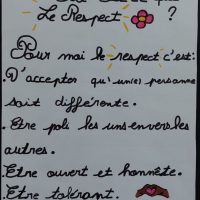 Le Respect ?
Pour moi le respect c'est:
. D'accepter qu'un(e) personne
soit différente.
. Etre polis les uns envers les
autres.
. Etre ouvert et honnête.
. Etre tolérant.